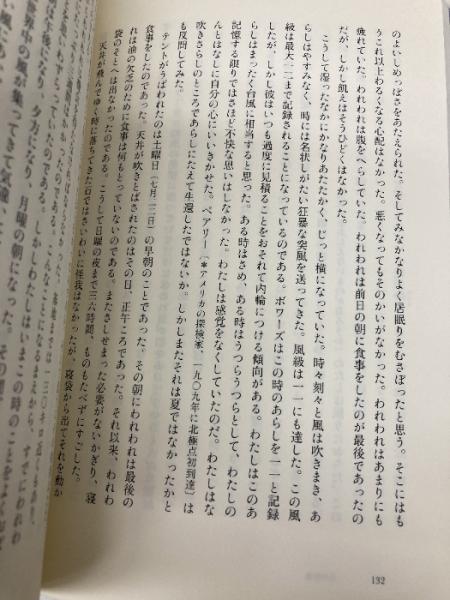 のよいしめっぽさをあたえられた。そしてみなかなりよく居眠りをむさぼったと思う。そこにはも
うこれ以上わるくなる心配はなかった。悪くなってもそのかいがなかった。われわれはあまりにも
疲れていた。われわれは腹をへらしていた、われわれは前日の朝に食事をしたのが最後であったの
だが、しかし飢えはそうひどくはなかった。
こうして湿ったなかにかなりあたたかく、じっと横になっていた。時々刻々と風は吹きまき、あ
らしはやすみなく、時には名状しがたい狂暴な突風を送ってきた。風級は一一にも達した。この風
級は最大一二まで記録されることになっているのである。ボワーズはこの時のあらしを一一と記録
したが、しかし彼はいつも過度に見積ることをおそれて内輪につける傾向がある。わたしはこのあ
らしはまったく台風に相当すると思った。ある時はさめ、ある時はうつらうつらとして、わたしの
記憶する限りではさほど不快な思いはしなかった。わたしは感覚をなくしていたのだ。わたしはな
んとはなしに自分の心にいいきかせた。ペアリー〔*アメリカの探検家、一九〇九年に北極点初到達〕は
吹きさらしのところであらしにたえて生還したではないか。しかしまたそれは夏ではなかったかと
も反問してみた。
テントがうばわれたのは土曜日（七月二二日）の早朝のことであった。その朝にわれわれは最後の
食事をしたのであった。天井が吹きとばされたのはその日、正午ごろであった。それ以来、われわ
れは油の欠乏のために食事は何もとっていないのである。またさしせまった必要がないかぎり、寝
袋のそとへは出なかったのである。こうして日曜の夜まで三六時間、ものもたべずにすごした。
天井が飛んでゆく時に落ちてきた石ではさいわいに怪我はなかったが、寝袋から出てそれを動か
132